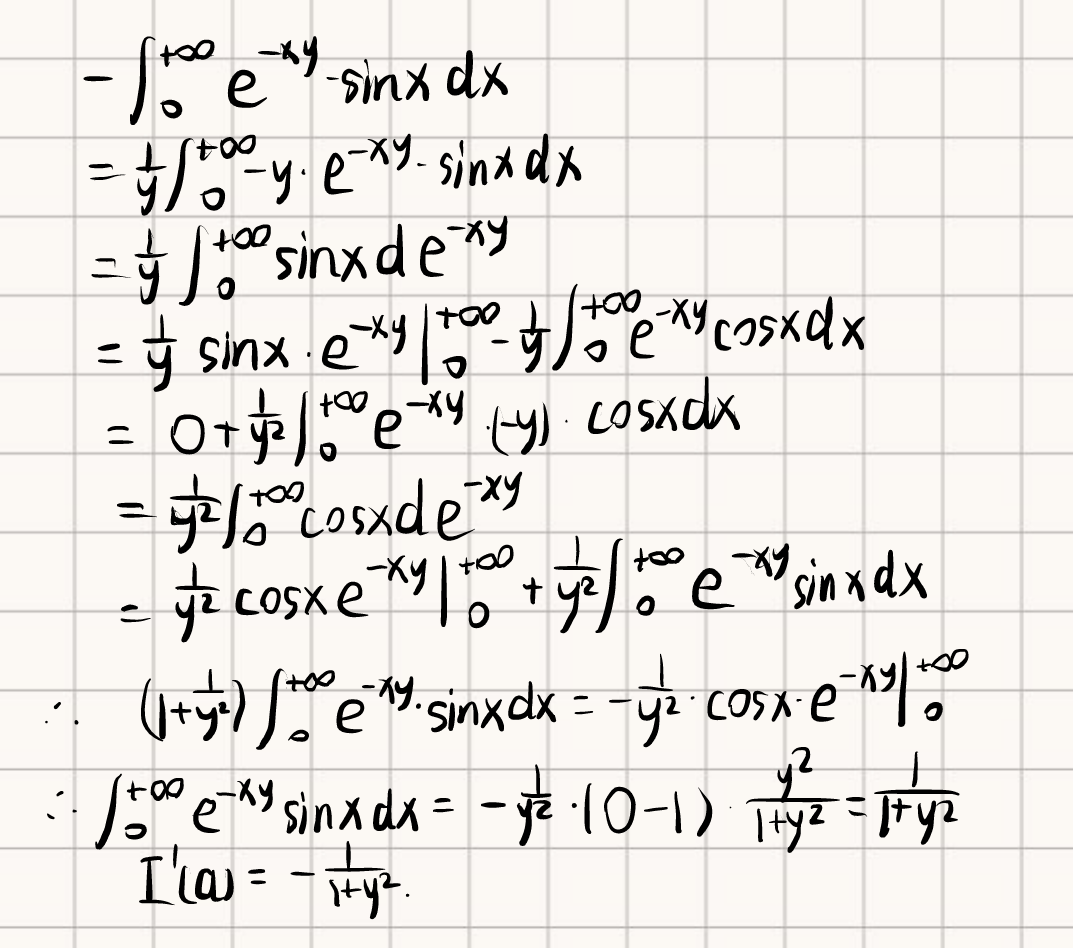 -∫₀^{+∞} e^{-xy}·sinx dx
= 1/y ∫₀^{+∞} -y·e^{-xy}·sinx dx
= 1/y ∫₀^{+∞} sinx d e^{-xy}
= 1/y sinx·e^{-xy} |₀^{+∞} - 1/y ∫₀^{+∞} e^{-xy} cosx dx
= 0 + 1/y² ∫₀^{+∞} e^{-xy}·(-y)·cosx dx
= 1/y² ∫₀^{+∞} cosx d e^{-xy}
= 1/y² cosx e^{-xy} |₀^{+∞} + 1/y² ∫₀^{+∞} e^{-xy} sinx dx
∴ (1+1/y²) ∫₀^{+∞} e^{-xy}·sinx dx = -1/y²·cosx·e^{-xy} |₀^{+∞}
∴ ∫₀^{+∞} e^{-xy} sinx dx = -1/y²·(0-1)·y²/(1+y²) = 1/(1+y²)
I'(a) = -1/(1+y²).